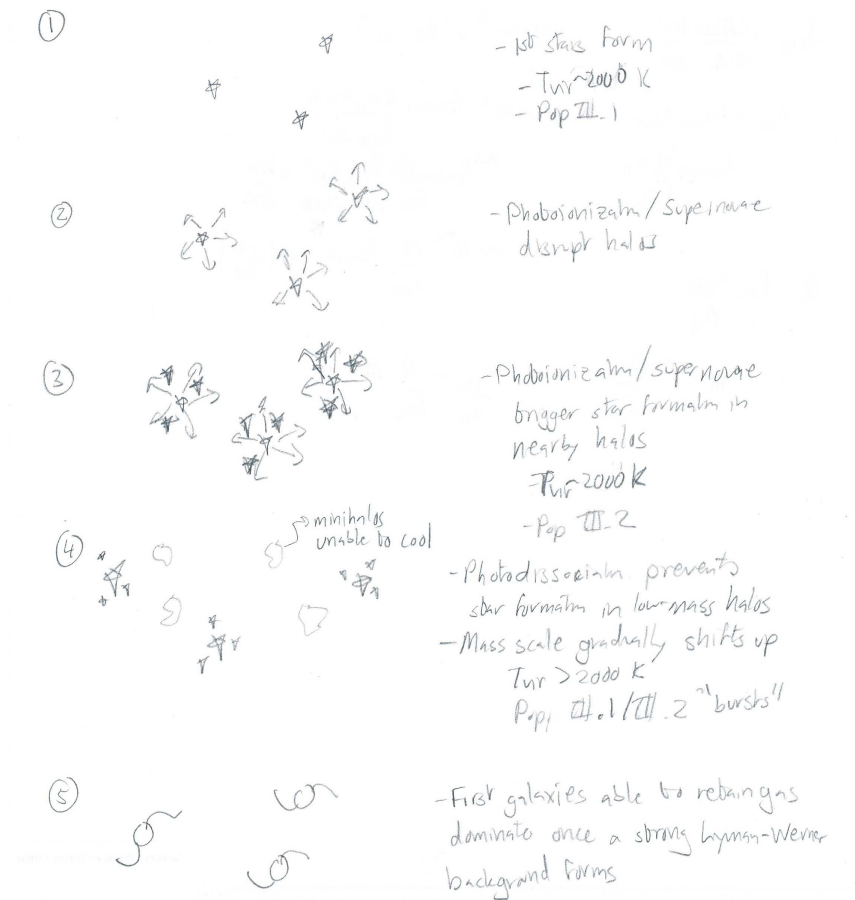 ①
- 1st stars form
- Tvir~2000 K
- Pop III.1
②
- Photoionizatn/supernovae
disrupt halos
③
- Photoionizatn/supernovae
trigger star formatn in
nearby halos
- Tvir~2000 K
- Pop III.2
minihalos
unable to cool
④
- Photodissociatn prevents
star formatn in low-mass halos
- Mass scale gradually shifts up
Tvir > 2000 K
Pop III.1/III.2 "bursts"
⑤
- First galaxies able to retain gas
dominate once a strong Lyman-Werner
background forms